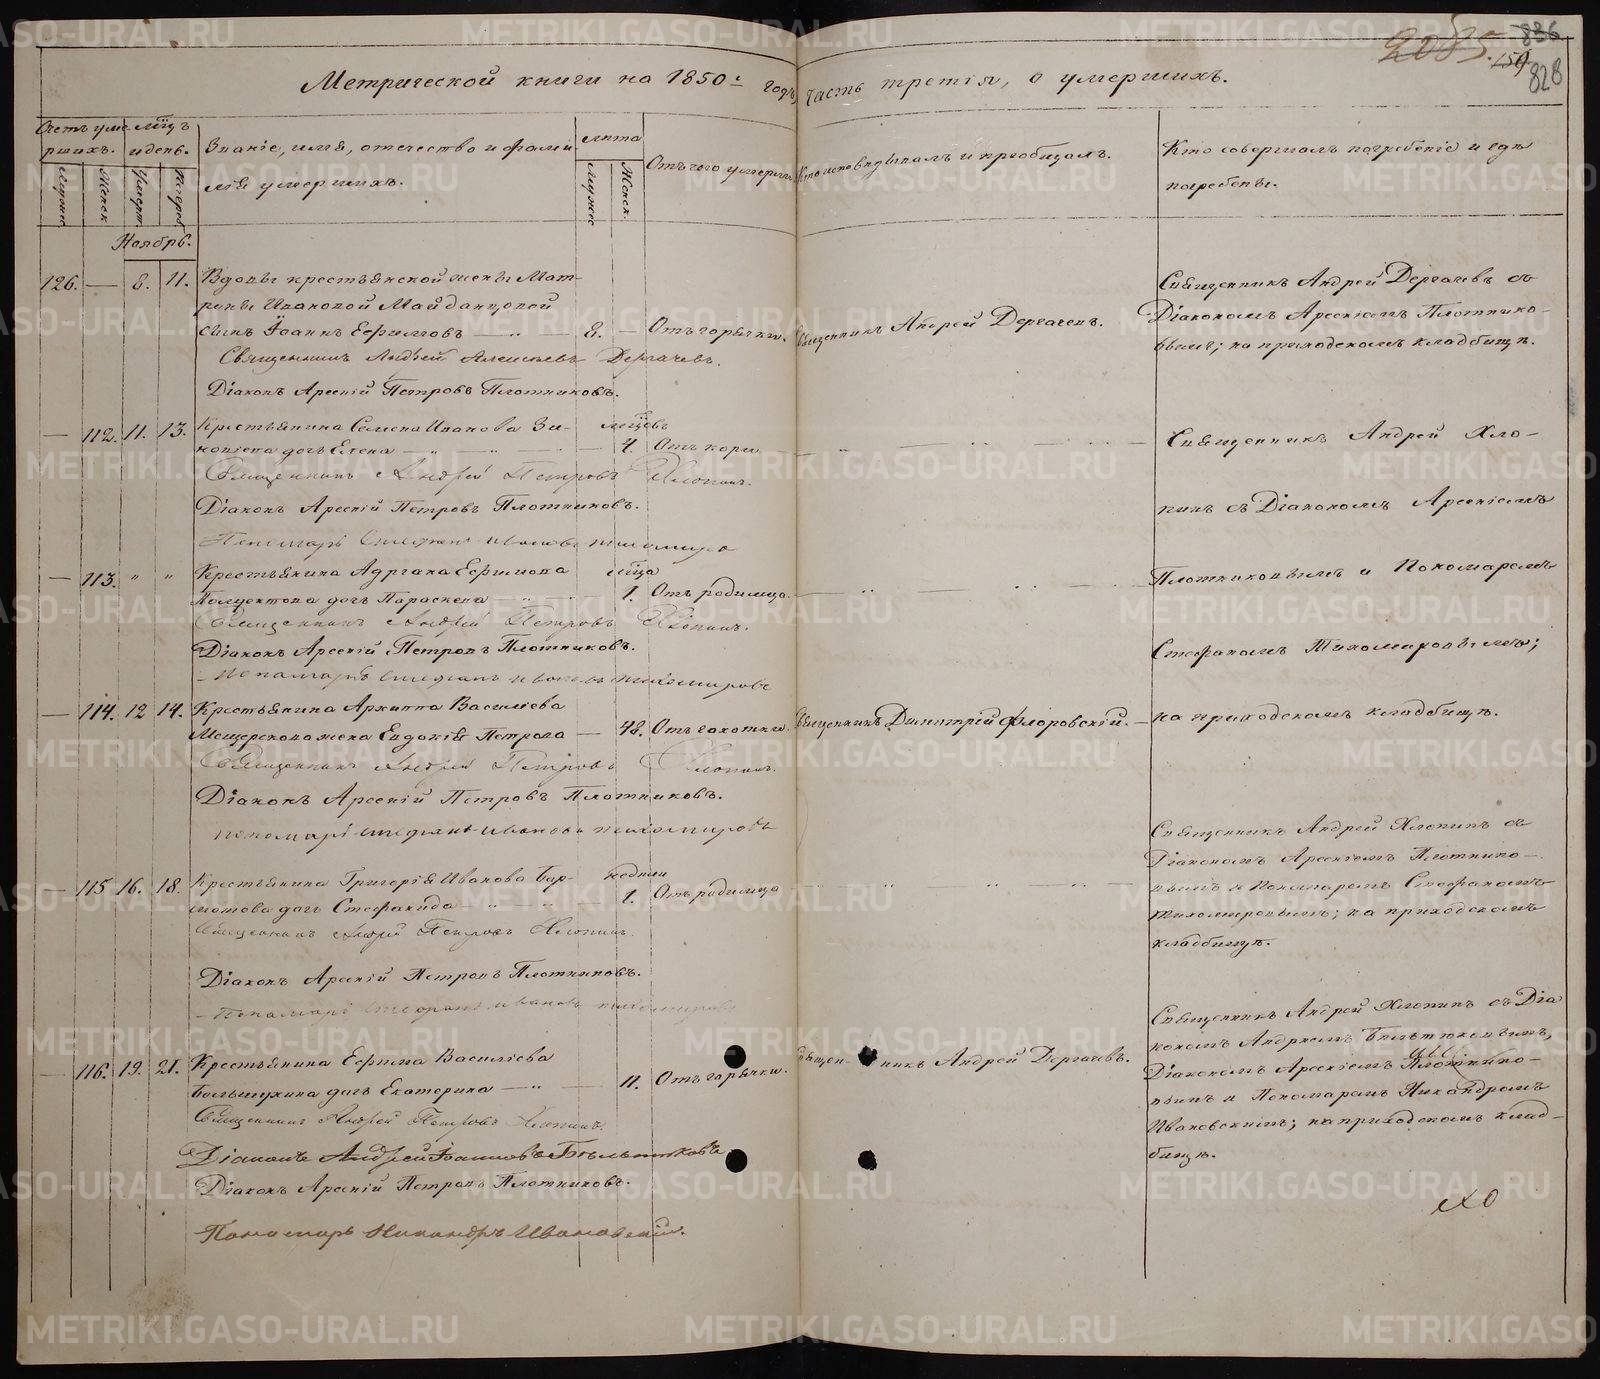 2085.
836
159
828
Метрической книги на 1850й годъ, часть третія, о умершихъ.
Счетъ умершихъ.
Мужес
Женск
Мѣсяцъ и день.
Умерт.
Погреб.
Званіе, имя, отечество и фамилія умершихъ.
лѣта
Мужес
Женск.
Отъ чего умерли
Кто исповѣдывалъ и пріобщалъ.
Кто совершалъ погребеніе и гдѣ
погребены.
Ноябрь.
126. — 8. 11. Вдовы крестьянской жены Мат-
роны Ивановой Майданцовой
сынъ Іоаннъ Ефимовъ — „ — 8. — Отъ горячки. Священникъ Андрей Дергачевъ.
Священникъ Андрей Дергачевъ съ
Діакономъ Арсеніемъ Плотнико-
вымъ; на приходскомъ кладбищѣ.
Священникъ Андрей Алексѣевъ Дергачевъ.
Діаконъ Арсеній Петровъ Плотниковъ.
— 112. 11. 13. Крестьянина Семена Иванова Зи-
новіева дочь Елена — мѣсяцовъ 4. Отъ кори
Священникъ Андрей Петровъ Хлопинъ.
Діаконъ Арсеній Петровъ Плотниковъ.
Пономарь Стефанъ Ивановъ Тихомиров
— 113. „ „ Крестьянина Адріана Ефимова
Полуектова дочь Параскева мѣсяца 1. Отъ родимца.
Священникъ Андрей Петровъ Хлопинъ.
Діаконъ Арсеній Петровъ Плотниковъ.
Пономарь Стефанъ Ивановъ Тихомировъ
— 114. 12 14. Крестьянина Архиппа Василіева
Мещерскова жена Евдокія Петрова — 48. Отъ чахотки. Священникъ Димитрій Флоровскій.
Священникъ Андрей Петровъ Хлопинъ.
Діаконъ Арсеній Петровъ Плотниковъ.
Пономарь Стефанъ Ивановъ Тихомировъ
Священникъ Андрей Хло-
пинъ съ Діакономъ Арсеніемъ
Плотниковымъ и Пономаремъ
Стефаномъ Тихомировымъ;
на приходскомъ кладбищѣ.
— 115 16. 18. Крестьянина Григорія Иванова Бар-
мотова дочь Стефанида недѣли 1. Отъ родимца
Священникъ Андрей Петровъ Хлопинъ.
Діаконъ Арсеній Петровъ Плотниковъ.
Пономарь Стефанъ Ивановъ Тихомировъ
Священникъ Андрей Хлопинъ съ
Діакономъ Арсеніемъ Плотнико-
вымъ и Пономаремъ Стефаномъ
Тихомировымъ; на приходскомъ
кладбищѣ.
— 116. 19. 21. Крестьянина Ефима Василіева
дочь Екатерина — „ — 11. Отъ горячки. Священникъ Андрей Дергачевъ.
Священникъ Андрей Петровъ Хлопинъ.
Діаконъ Андрей Іоанновъ Бѣльтюковъ
Діаконъ Арсеній Петровъ Плотниковъ.
Пономарь Никандръ Ивановскій.
Священникъ Андрей Хлопинъ съ Діа
кономъ Андреемъ Бѣльтюковымъ,
Діакономъ Арсеніемъ Плотнико-
вымъ и Пономаремъ Никандромъ
Ивановскимъ; на приходскомъ клад-
бищѣ.
METRIKI.GASO-URAL.RU